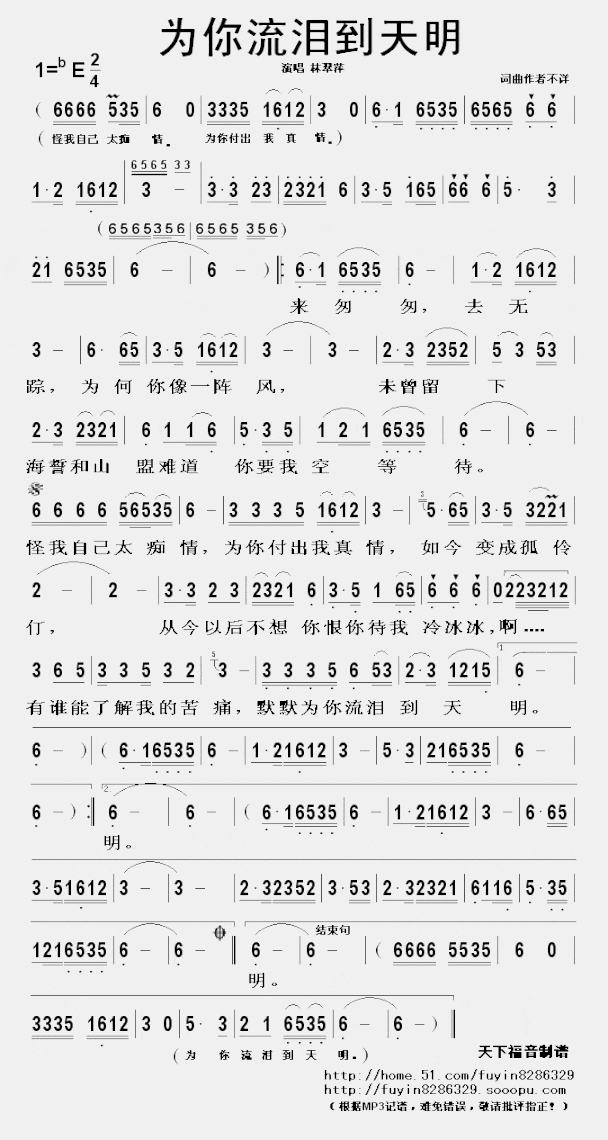 为你流泪到天明
1=ᵇE 2/4
演唱 林翠萍
词曲作者不详
( 6666 535 | 6 0 | 3335 1612 | 3 0 | 6·1 6535 | 6565 6 6 |
( 怪我自己 太痴 情。 为你付出 我真 情。)
6565 33
1·2 1612 | 3 – | 3·3 23 | 2321 6 | 3·5 165 | 66 6 | 5· 3 |
( 6565356 | 6565 356 )
21 6535 | 6 – | 6 – ) ‖: 6·1 6535 | 6 – | 1·2 1612 |
来 匆 匆， 去 无
3 – | 6· 65 | 3·5 1612 | 3 – | 3 – | 2·3 2352 | 5 3 53 |
踪， 为 何 你像一阵 风， 未曾留 下
2·3 2321 | 6 1 1 6 | 5·3 5 | 1 2 1 6535 | 6 – | 6 – |
海誓和山 盟难道 你要我 空 等 待。
6 6 6 6 56535 | 6 – | 3 3 3 5 1612 | 3 – | 3 5·65 | 3·5 3221 |
怪我自己太 痴 情，为你付出我真 情， 如今 变成孤 伶
2 – | 2 – | 3·3 2 3 | 2321 6 | 3·5 1 65 | 6 6 6 | 02223212 |
仃， 从今以后不想 你恨你待我 冷冰冰，啊....
3 6 5 | 3 3 5 3 2 | 5 3 – | 3 3 3 5 6 53 | 2·3 1215 | 1. 6 – |
有谁能了解我的苦 痛，默默为你流泪 到 天 明。
6 – ) | ( 6·16535 | 6 – | 1·21612 | 3 – | 5·3 | 216535 | 6 –
6 – ) :‖ 2. 6 – | 6 – | ( 6·16535 | 6 – | 1·21612 | 3 – | 6·65 |
明。
3·51612 | 3 – | 3 – | 2·32352 | 3·53 | 2·32321 | 6116 | 5·35 |
1216535 | 6 – | 6 – ‖ 结束句 6 – | 6 – | ( 6666 5535 | 6 0 |
明。
3335 1612 | 3 0 | 5· 3 | 2 1 6535 | 6 – | 6 – ) ‖
( 为 你 流泪 到 天 明。)
天下福音制谱
http://home.51.com/fuyin8286329
http://fuyin8286329.sooopu.com
（根据MP3记谱，难免错误，敬请批评指正！）